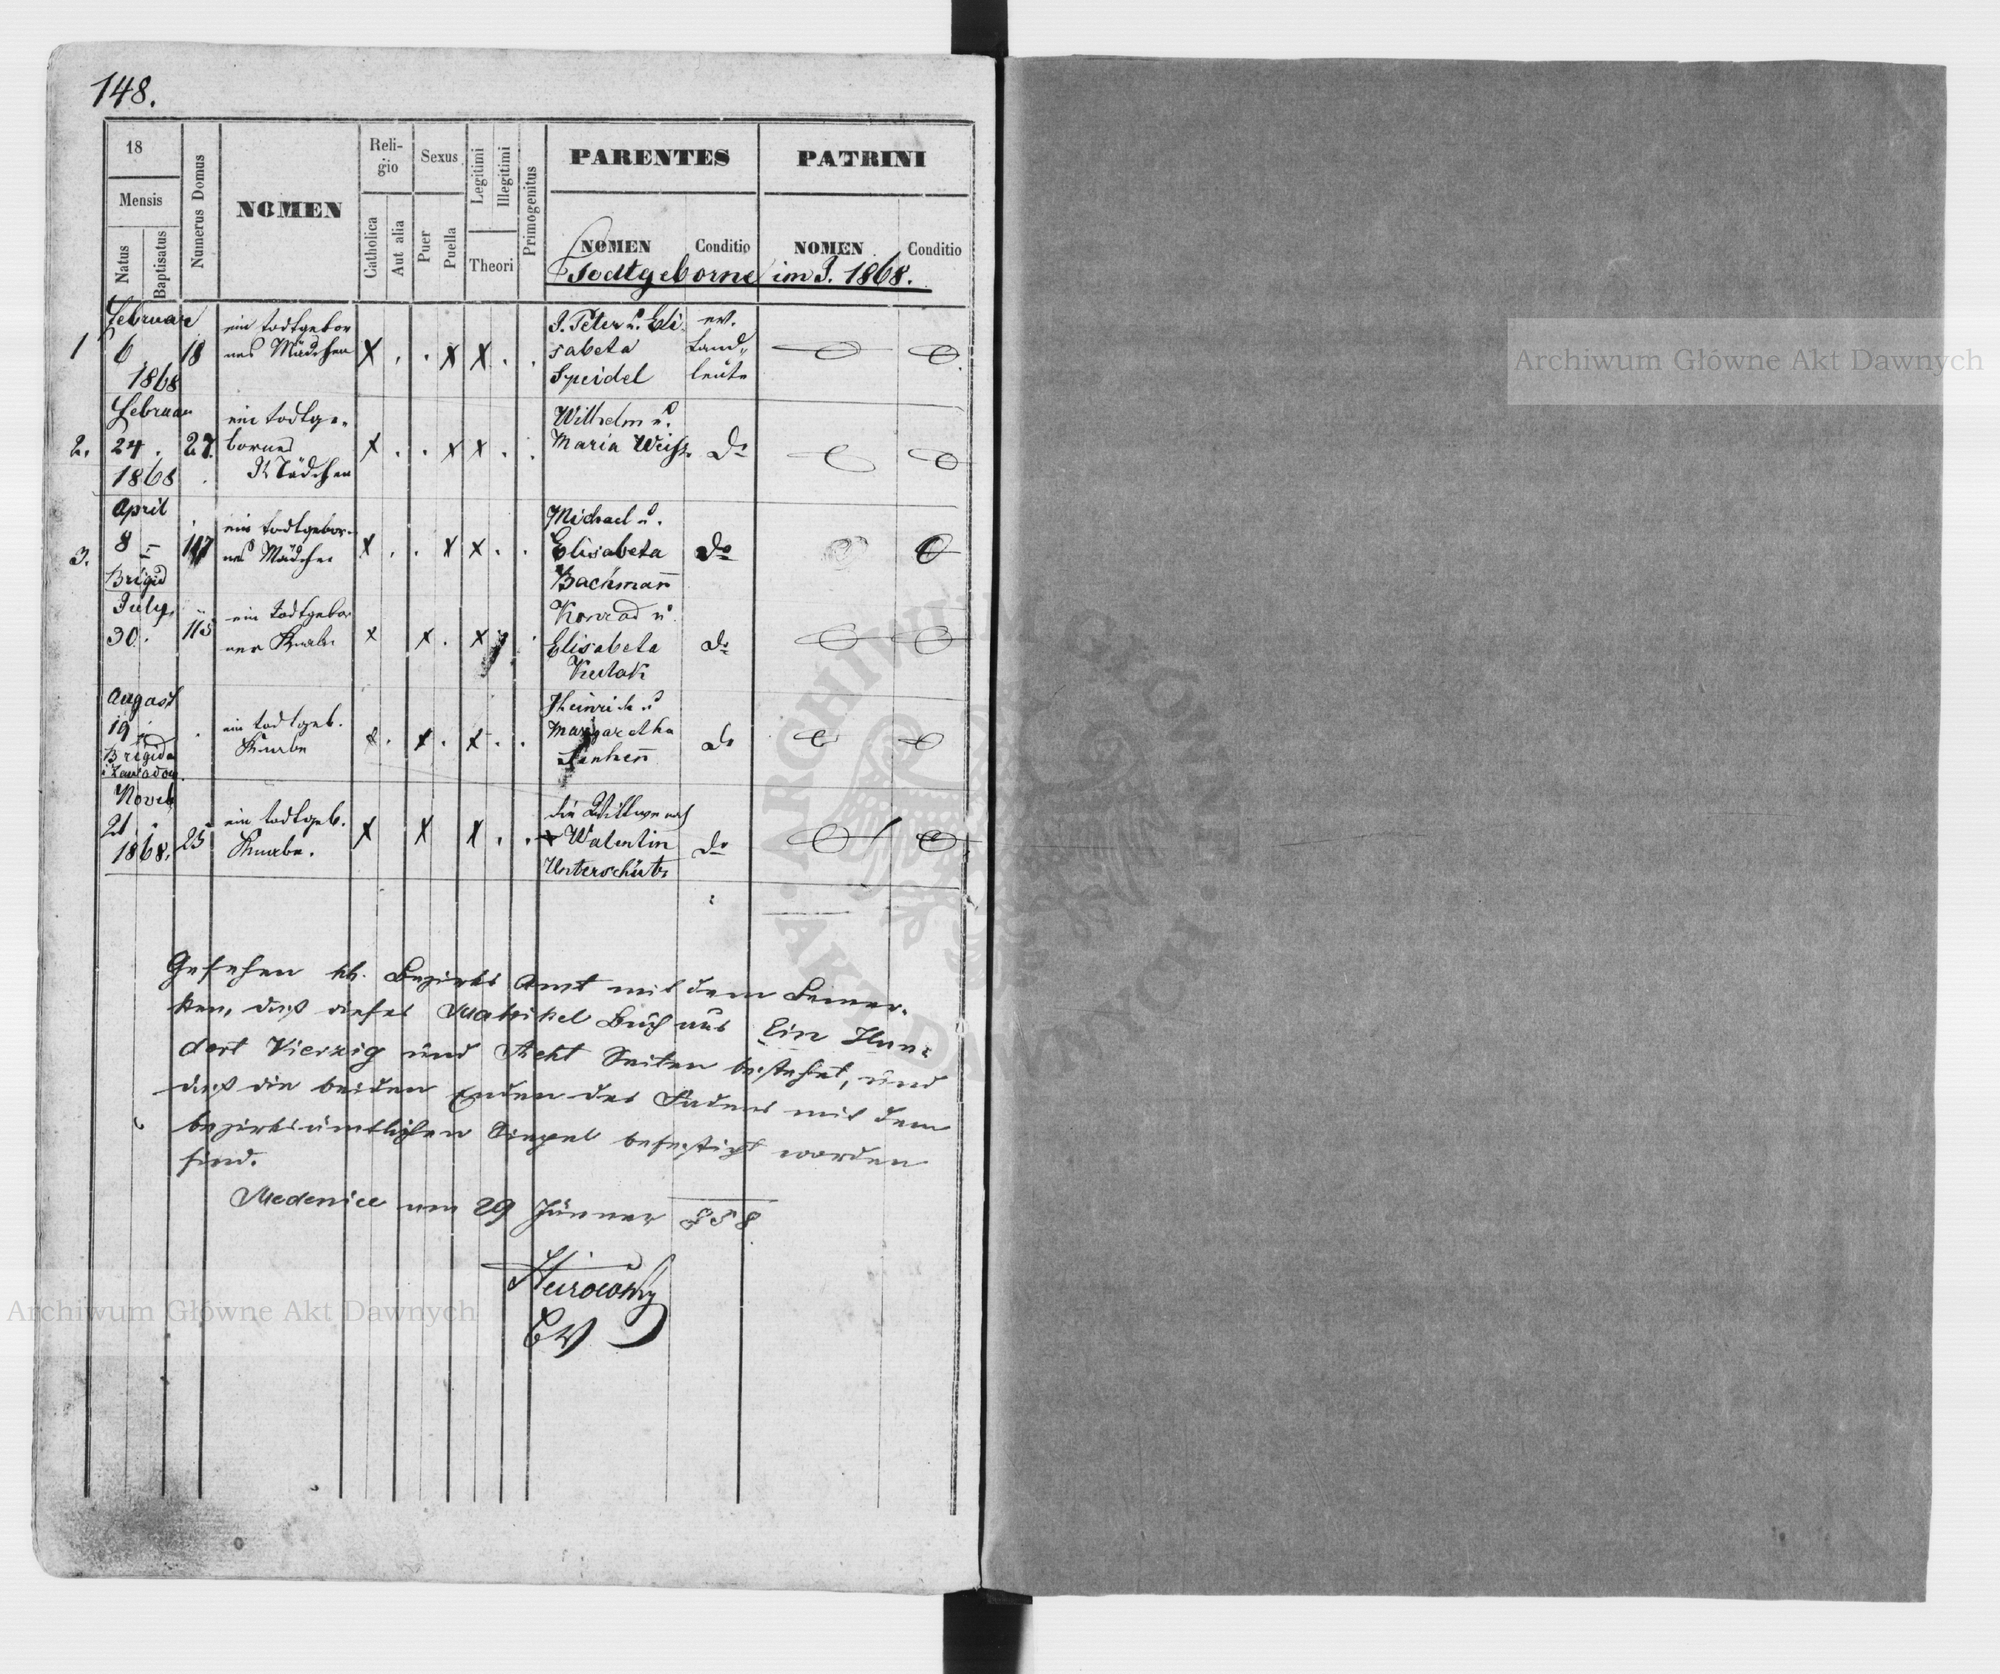 148.
18
Mensis
Natus
Baptisatus
Numerus Domus
NOMEN
Reli-
gio
Catholica
Aut alia
Sexus
Puer
Puella
Legitimi
Illegitimi
Theori
Primogenitus
PARENTES
NOMEN
Conditio
PATRINI
NOMEN
Conditio
Todtgeborne im J. 1868.
Februar
1 6 18
1868
ein todtgebor
nes Mädchen
X . . X X . .
J. Peter u. Eli
sabeta
Speidel
ev.
Land„
leute
Februar
2. 24. 27.
1868
ein todtge-
bornes
Mädchen
X . . X X . .
Wilhelm u.
Maria Weiss.
do
April
3. 8
Brigid
ein todtgebor-
nes Mädchen
X . . X X . .
Michael u.
Elisabeta
Bachmann
do
July
30. 115
ein todtgebor
ner Knabe
X X . X
Konrad u.
Elisabeta
do
August
19
Brigida
ein todtgeb.
Knabe
X . X . X . .
Heinrich u.
Margaretha
do
Noveb
21 25
1868.
ein todtgeb.
Knabe.
X X X . .
die Wittwe nach
Walentin
Unterschütz
do
Gesehen kk. Bezirks Amt mit dem Bemer-
ken, daß dieses Matrikel Buch aus Ein Hun-
dert Vierzig und Acht Seiten bestehet, und
daß die beiden Enden des Fadens mit dem
bezirksämtlichen Siegel befestigt worden
sind.
Medenice am 29 Jänner 858
Archiwum Główne Akt Dawnych
Archiwum Główne Akt Dawnych
ARCHIWUM GŁÓWNE
AKT DAWNYCH